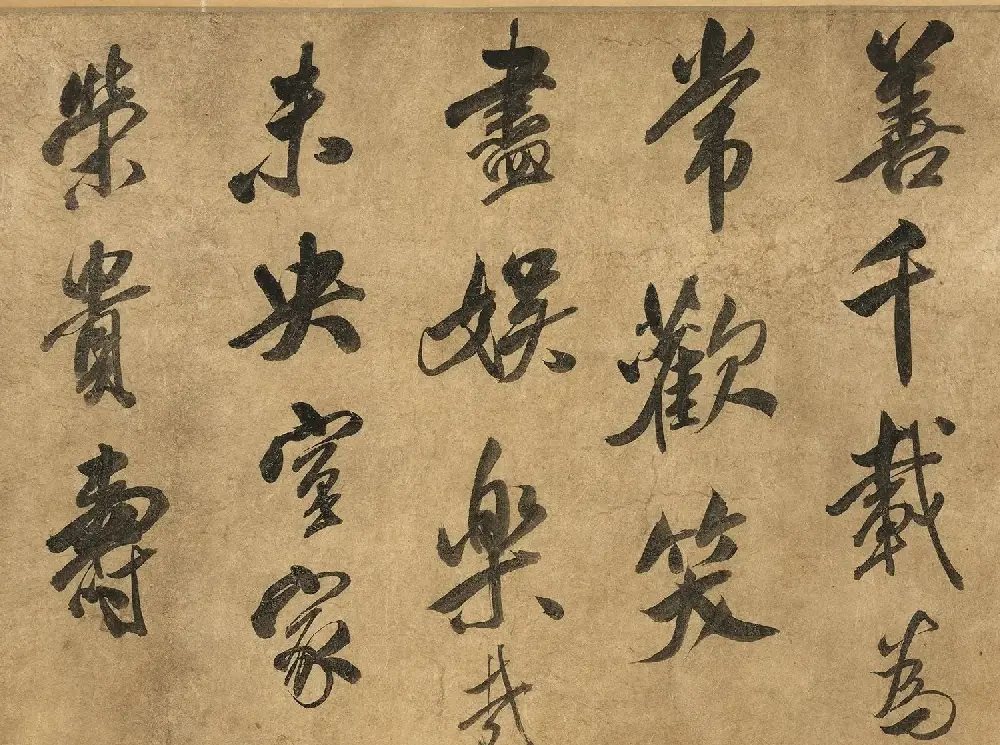 善千載為
常歡笑
盡娛樂哉
未央室家
榮貴壽